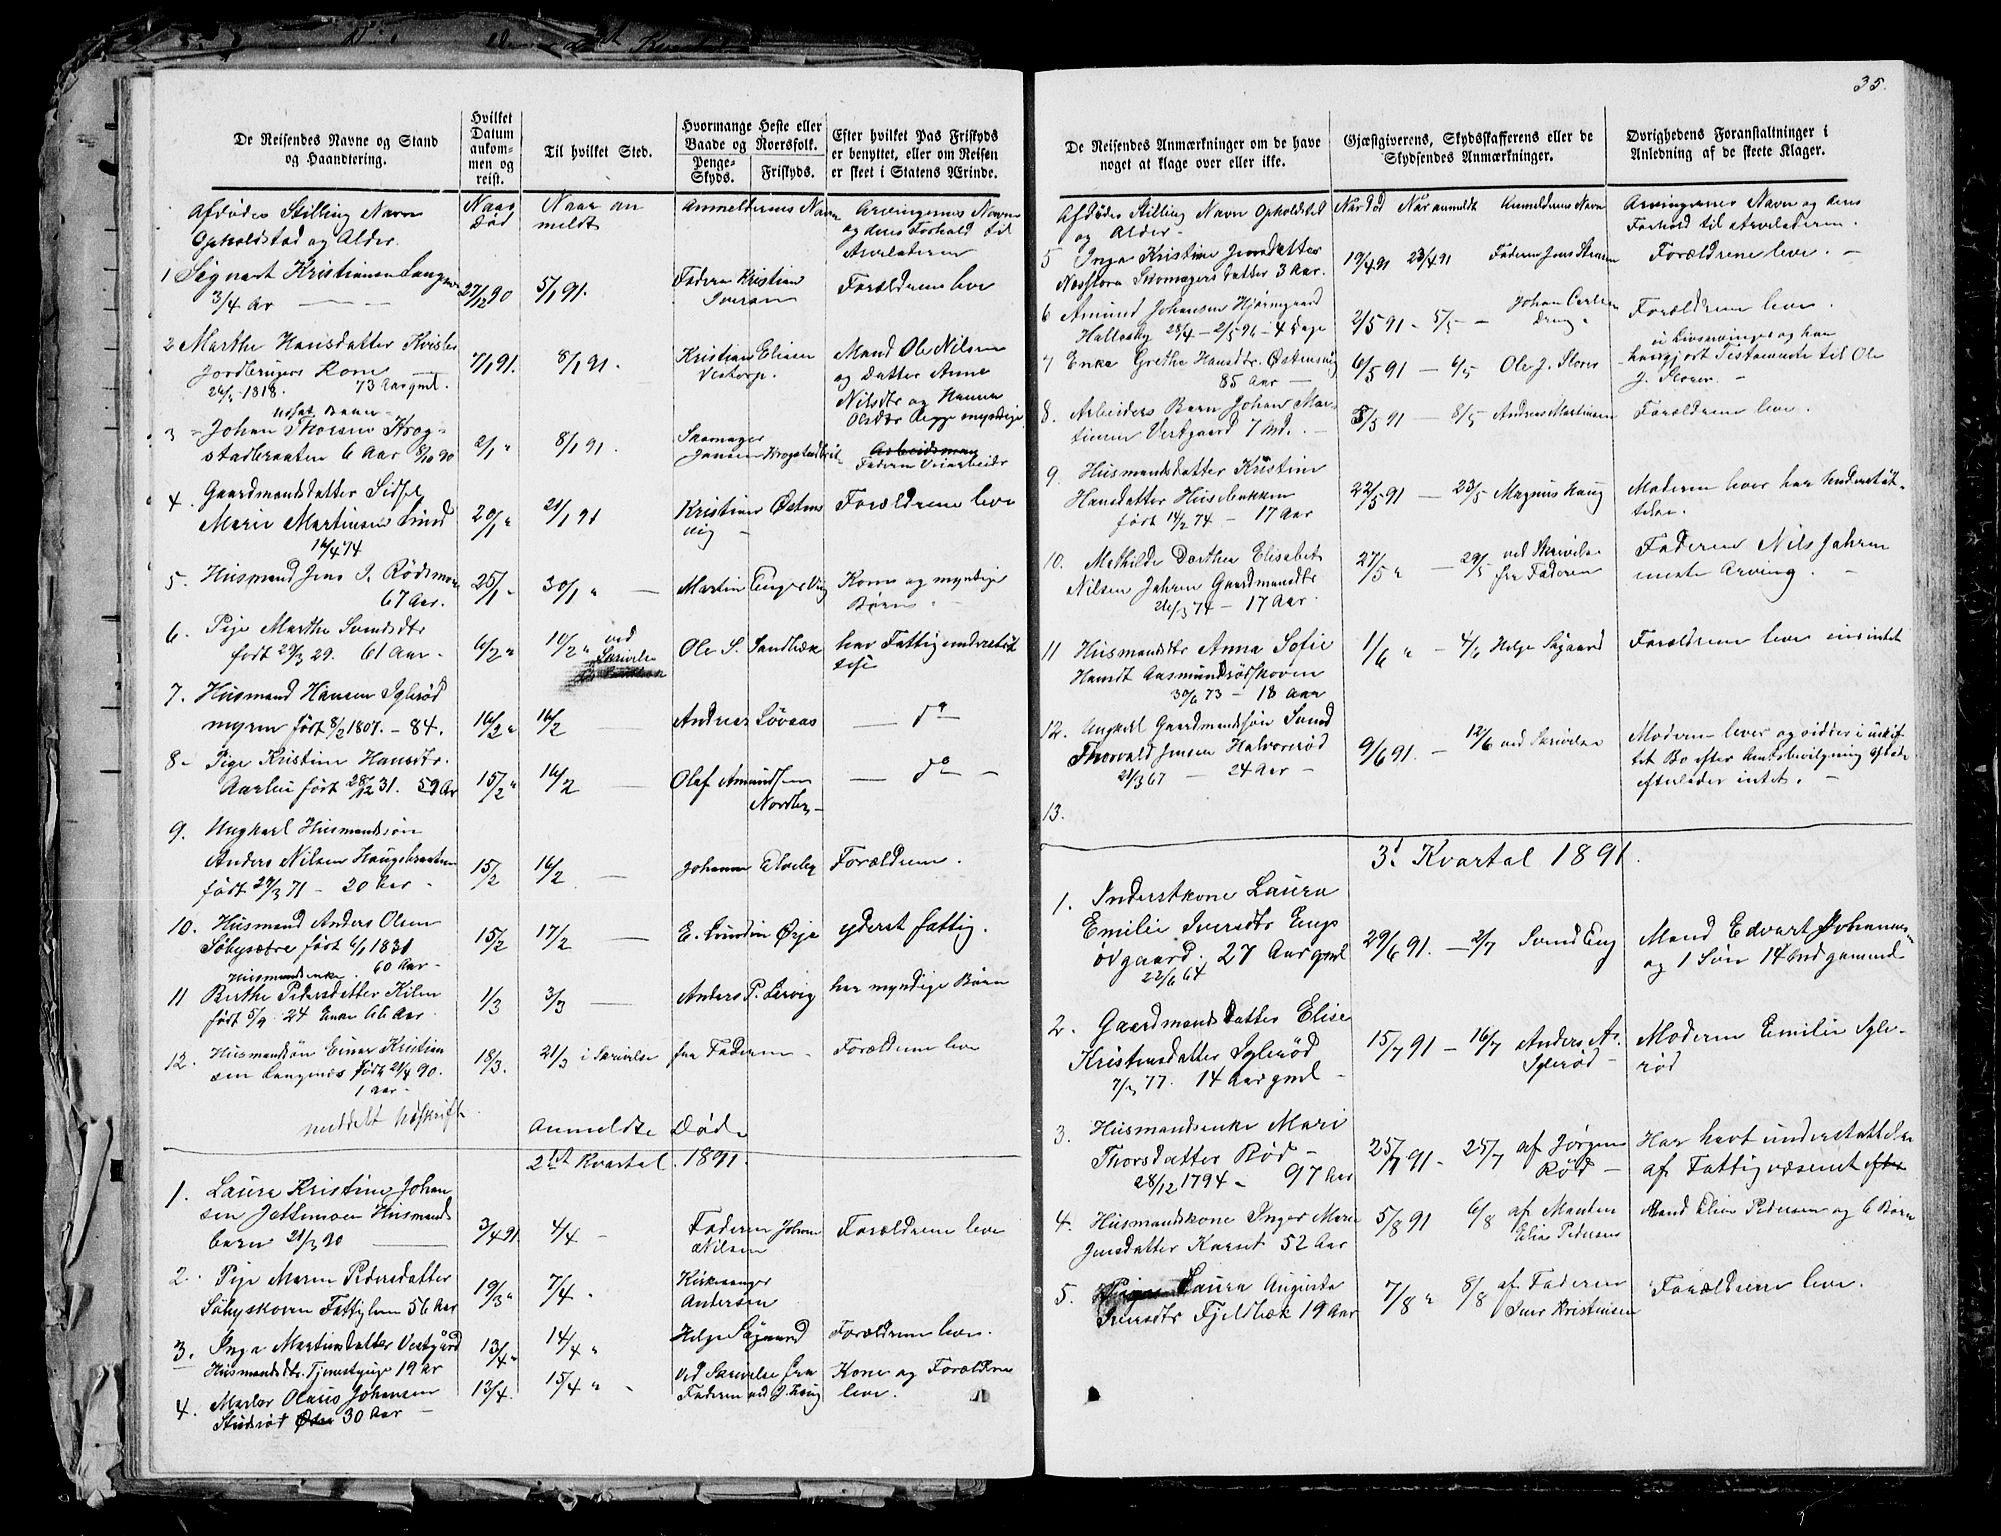 35.
De Reisendes Navne og Stand og Haandtering.
Hvilket Datum ankommen og reist.
Til hvilket Sted.
Hvormange Heste eller Baade og Roersfolk.
Penge-Skyds. Friskyds.
Efter hvilket Pas Friskyds er benyttet, eller om Reisen er skeet i Statens Ærinde.
Afdødes Stilling Navn Opholdstad og Alder.
Naar Død
Naar anmeldt
Anmeldernes Navn
Arvingernes Navne og deres Forhold til Arveladeren
1 Signart Kristiansen Langnes 3/4 Ar 27/12 90 5/1 91. Faderen Kristian Iversen Forældrene leve
2 Marthe Hansdatter Jordbruger Kone 26/1 1818. 73 Aar gml. 7/1 91. 8/1 91. Kristian Eliasen Vestorp. Mand Ole Nilsen og Datter Anne Nilsdtr og Hanna Olsdtr Begge myndige
3 Johan Thorsen Krogstadbraaten 6 Aar 8/10 90 2/1 " 8/1 91. Skomager Jensen Krogstadbråt Arbeidsmand Faderen Veiarbeider
4. Gaardmandsdatter Sidsel Marie Martinsen Lund 16/4 74 20/1 " 21/1 91 Kristian Østensvig Forældrene leve
5. Husmand Jens J. Rødsmoen 67 Aar. 25/1 " 30/1 " Martin Engervig Kone og myndige Børn.
6. Pige Marthe Svendsdtr født 29/3 29. 61 Aar 6/2 " 10/2 " ved Skrivelse Ole S. Sandbæk hav Fattigunderstøttelse
7. Husmand Hansen Iglerød myren født 8/2 1807. - 84. 16/2 " 16/2 Andreas Løvaas do
8. Pige Kristine Hansdtr. født 28/12 31. 59 Ar 15/2 " 16/2 Olaf Amundsen Nordby do
9. Ungkarl Husmandssøn Anders Nilsen Haugsbraaten født 29/3 71 - 20 Aar 15/2 16/2 Johannes Forældrene.
10. Husmand Anders Olsen Søbysætre født 6/1 1831 60 Aar 15/2 17/2 E. Lundin Ørje yderst fattig.
11 Husmandsenke. Berthe Pedersdatter Kilen født 5/9 24 Enke 66 Aar. 1/3 3/3 Anders P. Lervig har myndige Børn
12. Husmandssøn Einar Kristiansen Langnæs født 21/4 90. 1 Aar 18/3. 21/3 i Skrivelse fra Faderen Forældrene leve
meddelt Udskrift.
Anmeldte Døde
2det Kvartal 1891.
1. Laura Kristine Johansen Husmandsbarn 21/3 90 3/4 91 4/4 Faderen Johan Nilsen Forældrene leve
2. Pige Maren Pedersdatter Søbyskoven Fattiglem 56 Aar 19/3 " 7/4 Kirkesanger Andersen
3. Inga Martinsdatter Vestgård Husmandsdtr. Tjenestepige 19 År 13/4 " 14/4 " Helge Sågaard Forældrene leve.
4. Olaus Johansen 30 Aar 13/4. 15/4 " Ved Skrivelse fra Faderen ved J. Haug Kone og Forældre leve.
De Reisendes Anmærkninger om de have noget at klage over eller ikke.
Gjæstgiverens, Skydsskafferens eller de Skydsendes Anmærkninger.
Øvrighedens Foranstaltninger i Anledning af de skeete Klager.
Afdødes Stilling Navn Opholdsted og Alder
Når Død Når anmeldt Anmelderens Navn
Arvingernes Navn og deres Forhold til Arveladeren.
5 Inga Kristine Jensdatter Skomagers Datter 3 Aar. 19/4 91 23/4 91 Faderen Jens Forældrene leve.
6 Amund Johansen Hallesby 28/4 - 2/5 91 - 4 Dage 2/5 91 - 5/5 - Johan Forældrene leve.
7 Enke Grethe Hansdtr. Østensvig 85 Aar 6/5 91 - 6/5 Ole J. Slorer ei Livsarvinger og han har gjort Testamente til Ole J. Slorer.
8. Arbeiders Barn Johan Martinsen Vestgaard 7 Md. 8/5 91 - 8/5 Andreas Martinsen Forældrene leve.
9. Husmandsdatter Kristine Hansdatter Husebakken født 14/2 74 - 17 Aar 22/5 91 - 23/5 Magnus Haug Moderen lever har Understøttelse.
10. Mathilde Dorthea Elisabet Nilsen Jahren Gaardmandsdtr 26/3 74 - 17 Aar. 27/5 " - 29/5 ved Skrivelse fra Faderen Faderen Nils Jahren eneste Arving.
11 Husmandsdtr Anna Sofie Hansdt Aasmundrødskoven 30/6 73 - 18 Aar 1/6 " - 4/6 Helge Sågaard Forældrene leve eier intet
12. Ungkarl Gaardmandssøn Svend Thorvald Jensen Halvorsrød 21/3 67 - 24 Aar 9/6 91. - 12/6 ved Skrivelse Moderen lever og sidder i uskiftet Bo efter Amtsbevilgning Afdøde efterlader intet.
13.
3d Kvartal 1891.
1. Inderstkone Laura Emilie Iversdtr Engs ødegaard. 27 Aar gml 22/6 64 29/6 91. - 2/7 Svend Eng Mand Edvart Johannesen og 1 Søn 14 Md gammel
2. Gaardmandsdatter Elise Kristensdatter Iglerød 7/3 77. 14 Aar gml 15/7 91 - 16/7 Anders A. Iglerød Moderen Emilie Iglerød
3. Husmandsenke Mari Thorsdatter Rød 28/12 1794 97 Aar 25/7 91 - 25/7 af Jørgen Rød Har havt understøttelse af Fattigvæsenet efter
4. Husmandskone Inger Marie Jensdatter Karset 52 Aar 5/8 91 6/8 af Manden Elias Pedersen Mand Elias Pedersen og 6 Børn
5. Laura Augusta Iversdtr Fjeldbæk 19 Aar 7/8 " 8/8 af Faderen Iver Kristiansen Forældrene leve.